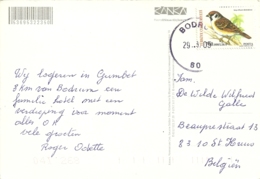 KANKA
BODR
29.
09
80
Wij logeren in Gumbet
3 km van Bodrum een
familie hotel met een
verdieping voor moment
alles O.K
vele groeten
Roger Odette
Fam.
De Wilde Wilfried
Beaupréstraat 13
8310 St Kruis
Belgiën